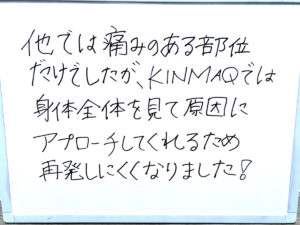 他では痛みのある部位
だけでしたが、KINMAQでは
身体全体を見て原因に
アプローチしてくれるため
再発しにくくなりました!